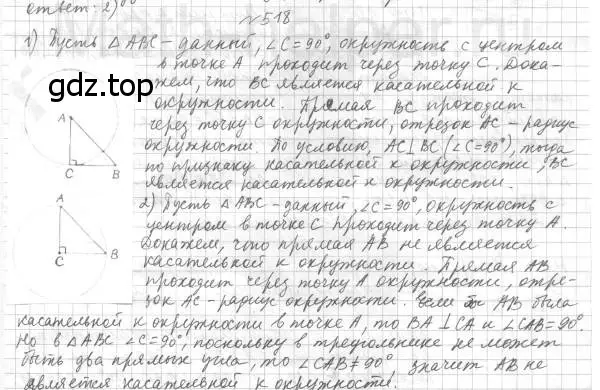 ответ: 2)
№518
1) Пусть △ABC - данный, ∠C=90°, окружность с центром
в точке A проходит через точку C. Дока-
жем, что BC является касательной к
gdz.top
окружности. Прямая BC проходит
через точку C окружности, отрезок AC - радиус
окружности. По условию, AC⊥BC (∠C=90°), тогда
по признаку касательной к окружности, BC
является касательной к окружности.
A
C B
2) Пусть △ABC - данный, ∠C=90°, окружность с
центром в точке C проходит через точку A.
Докажем, что прямая AB не является
касательной к окружности. Прямая AB
проходит через точку A окружности, отре-
зок AC - радиус окружности. Если бы AB была
A
C B
касательной к окружности в точке A, то BA⊥CA и ∠CAB=90°.
Но в △ABC ∠C=90°, поскольку в треугольнике не может
быть два прямых угла, то ∠CAB≠90°, значит AB не
является касательной к окружности.